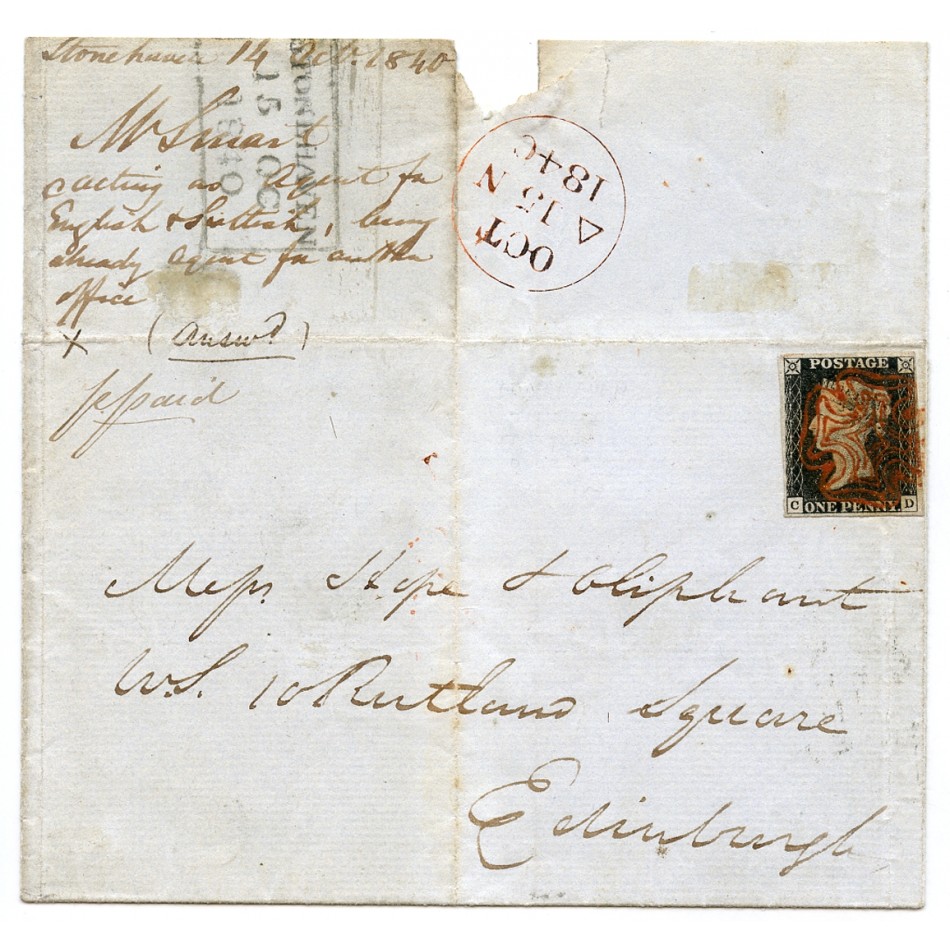 Stonehaven 14 Oct. 1840
STONEHAVEN
15 OC
1840
Mr Smart
acting as Agent for
English & Scottish, being
already Agent for another
office
x (Answd)
ppaid
OCT
15 N
1840
POSTAGE
C ONE PENNY D
Messrs Hope & Oliphant
W.S. 10 Rutland Square
Edinburgh